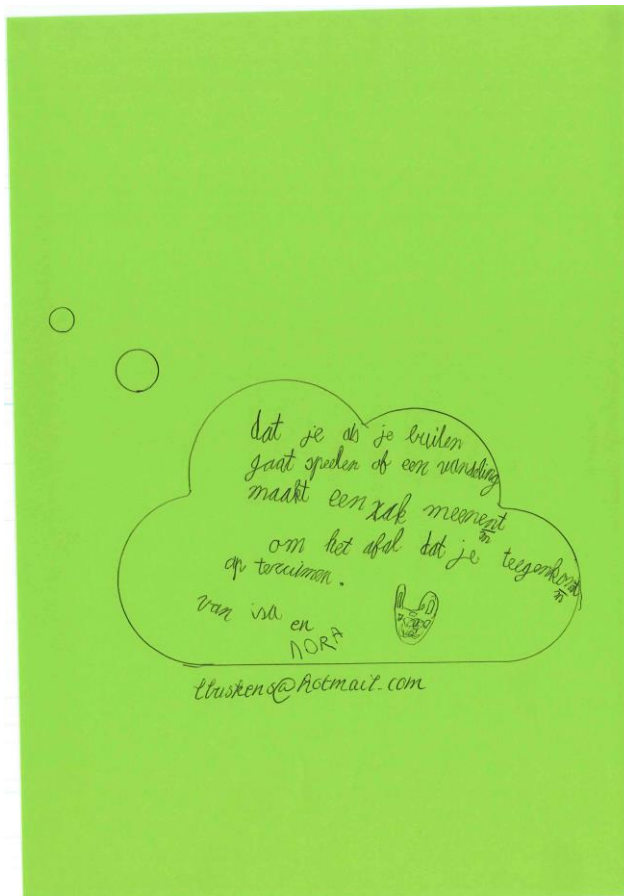 dat je als je buiten
gaat spelen of een wandeling
maakt een zak meenemt
om het afal dat je teegenkomt
op teruimen.
van isa
en
NORA